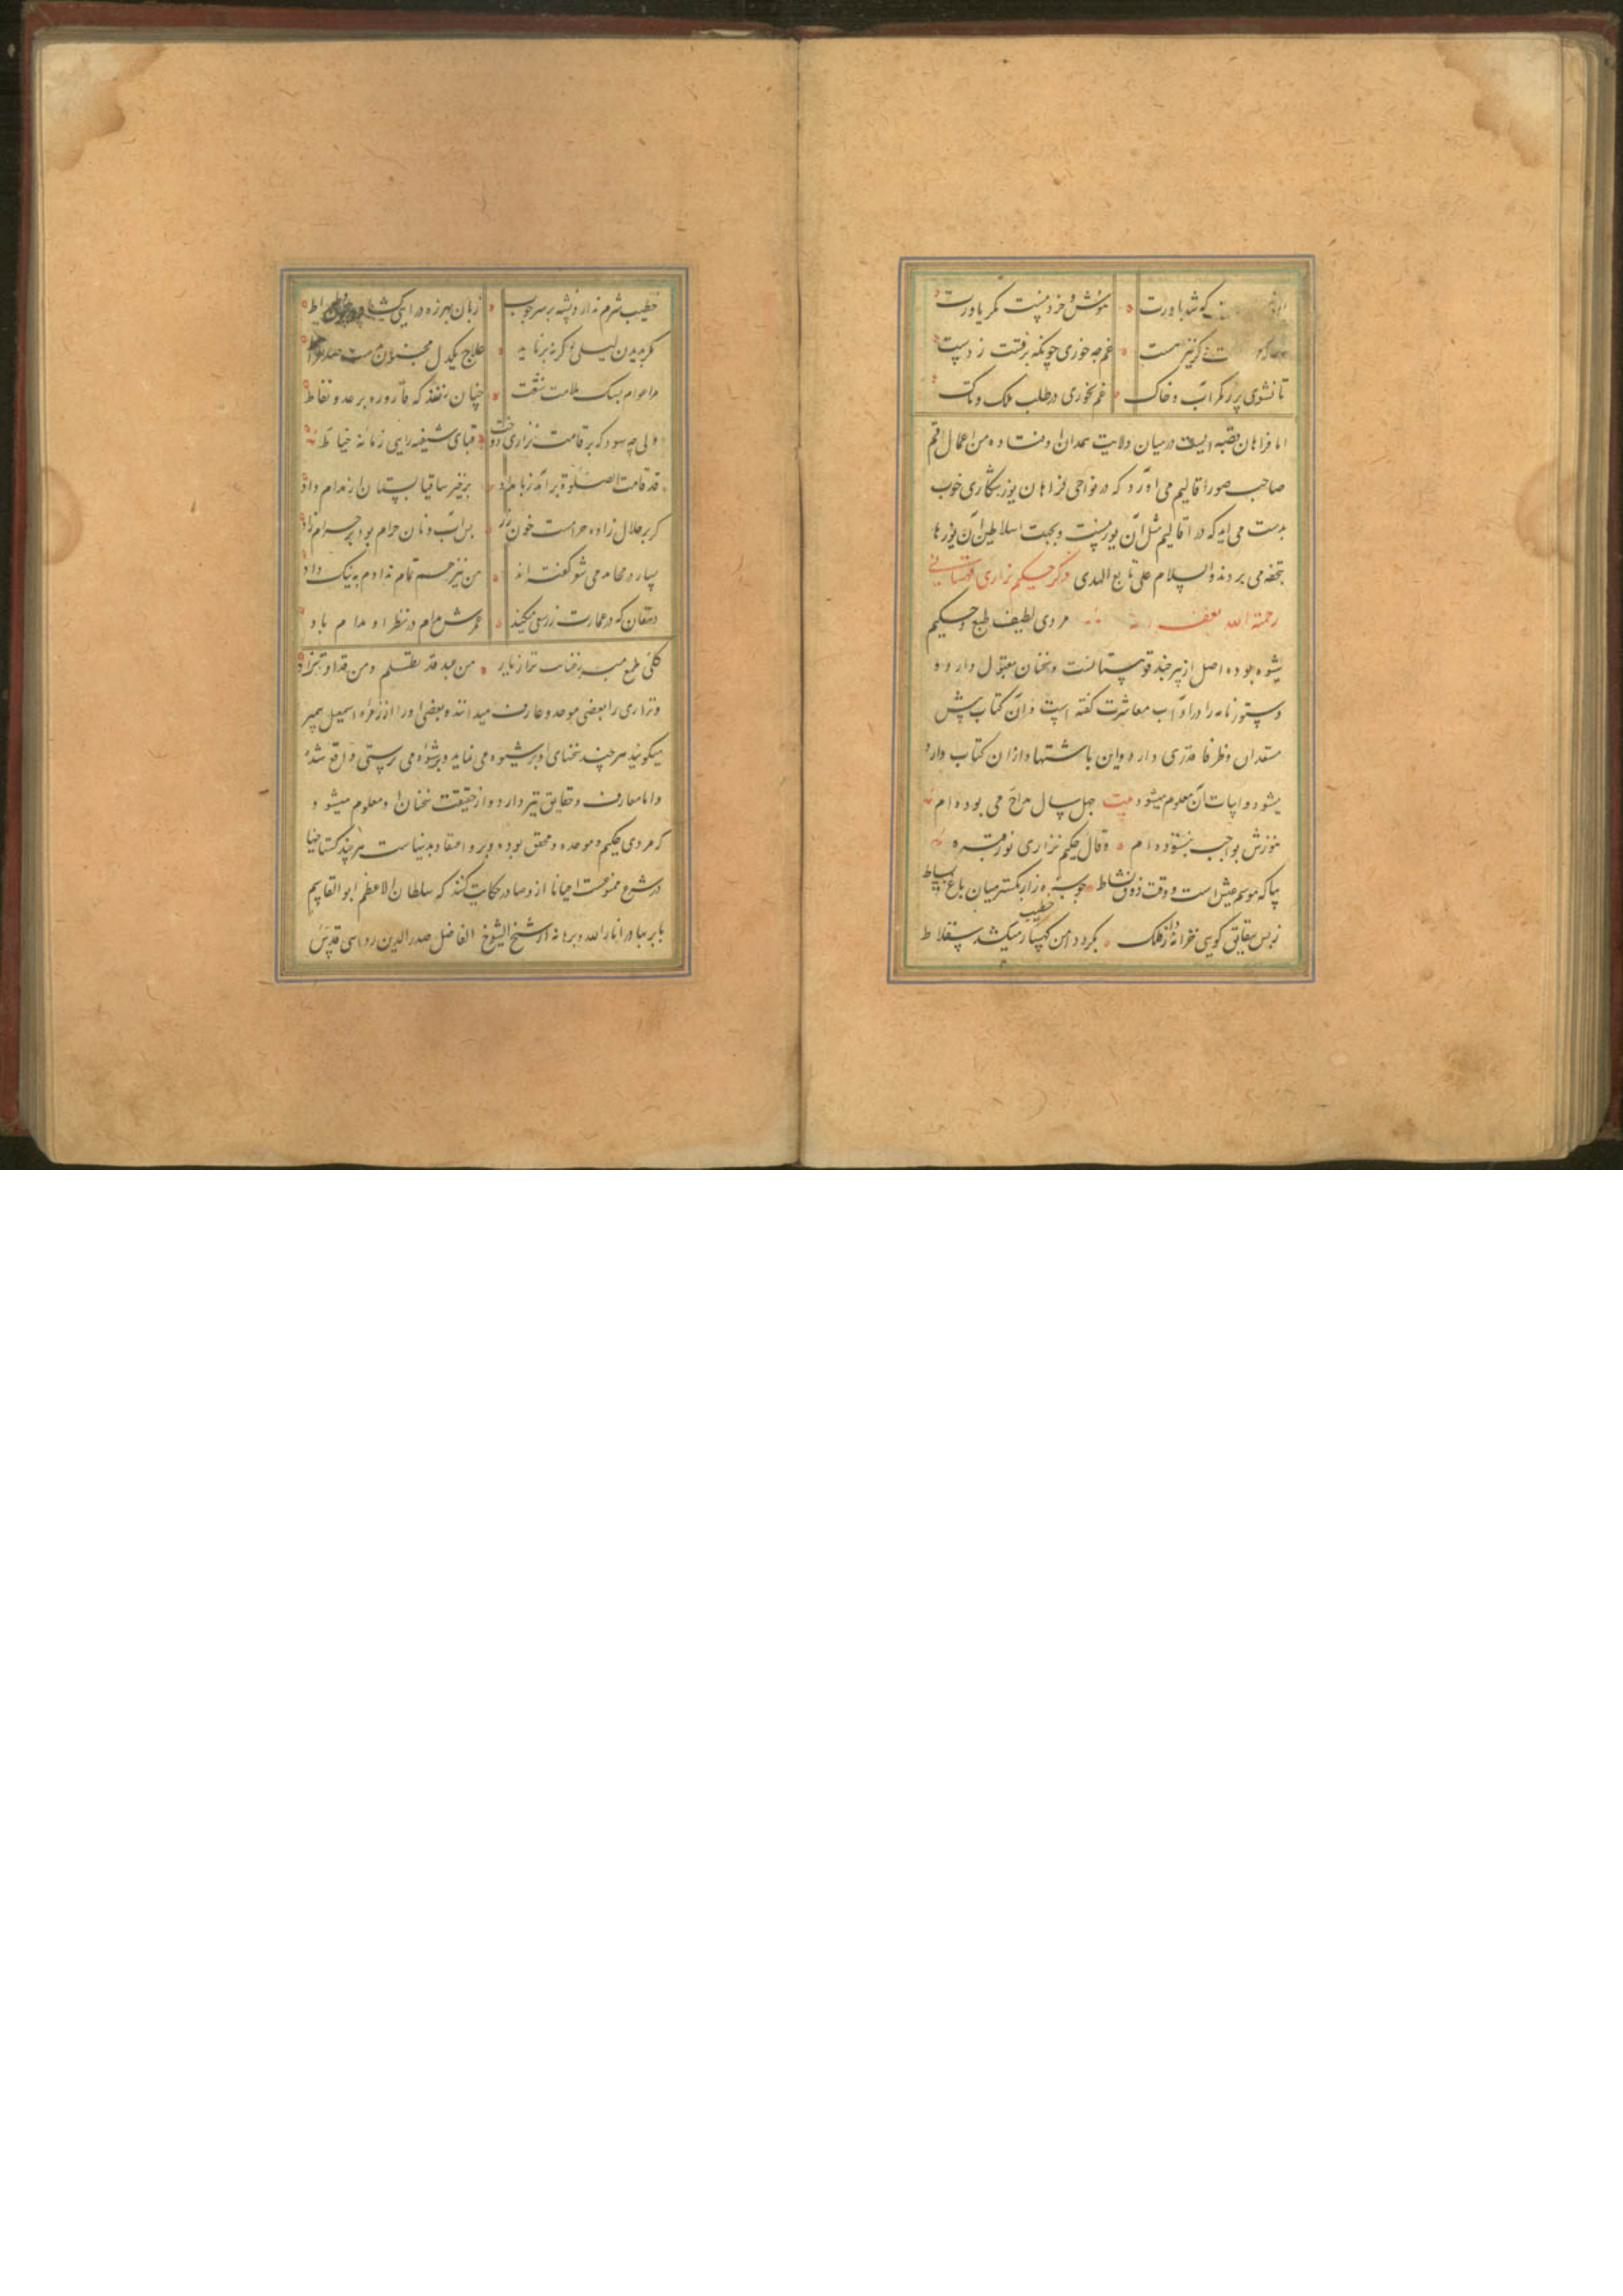 که شد باورت مونس و خرد نیست مگر یاورت
گر نیز هست غم چه خوری چونکه برفتت ز دست
تا نشوی پر ز مگر آب و خاک غم نخوری در طلب ملک و
اما فراهان قصبه ایست در میان ولایت همدان و من اعمال قم
صاحب صور اقالیم می آورد که در نواحی فراهان یوز شکاری خوب
بدست می آید که در اقالیم مثل آن یوز نیست و بجهت سلاطین آن یوزها
تحفه می بردند والسلام علی تابع الهدی ذکر حکیم نزاری قهستانی
رحمة الله مردی لطیف طبع و حکیم
شیوه بوده اصل از بیرجند قوهستانست و سخنان مقبول دارد و
دستور نامه را در آداب معاشرت گفته است و آن کتاب پیش
مستعدان و ظرفا قدری دارد و این با از آن کتاب دارد
میشود و ابیات آن معلوم میشود بیت چهل سال مداح می بوده ام
هنوزش بواجب بنستوده ام وقال حکیم نزاری نور قبره
بیا که موسم عیش است و وقت ذوق و نشاط چو سبزه زار بگستر میان باغ بساط
ز بس شقایق گویی خزانه دار فلک بگرد دامن کهسار میکشد سقلاط
خطیب شرم ندارد زبان بهرزه درایی
مگر بدیدن لیلی وگرنه برناید علاج یکدل مجنون
مرا عوام بسنگ ملامت شنعت چنان زنند که قاروره بر عدو نفاط
ولی چه سود که بر قامت نزاری دوخت قبای شیفه رایی زمانه خیاط
قد قامت الصلوة برآمد ز بامداد برخیز ساقیا بستان از ندام داد
گر بر حلال زاده حرامست خون رز بس آب و نان حرام بود بر حرام زاد
بسیار در محامد می شعر گفته اند من نیز هم تمام ندادم به نیک داد
دهقان که در عمارت رز سعی میکند عمرش مدام در نظر او مدام باد
من عبد قد
و نزاری را بعضی موحد و عارف میدانند و بعضی او را از زمره اسمعیل
میگویند هر چند سخنهای او بر شیوه می نماید و بر شیوه می پرستی واقع شده
و اما معارف و حقایق نیز دارد و از حقیقت سخنان او معلوم میشود
که مردی حکیم و موحد و محقق بوده و برو اعتقاد بد نیست هر چند گستاخیها
در شرع ممنوعست احیانا ازو صادر حکایت کنند که سلطان الاعظم ابو القاسم
بابر بهادر انار الله برهانه از شیخ الشیوخ الفاضل صدر الدین رواسی قدس